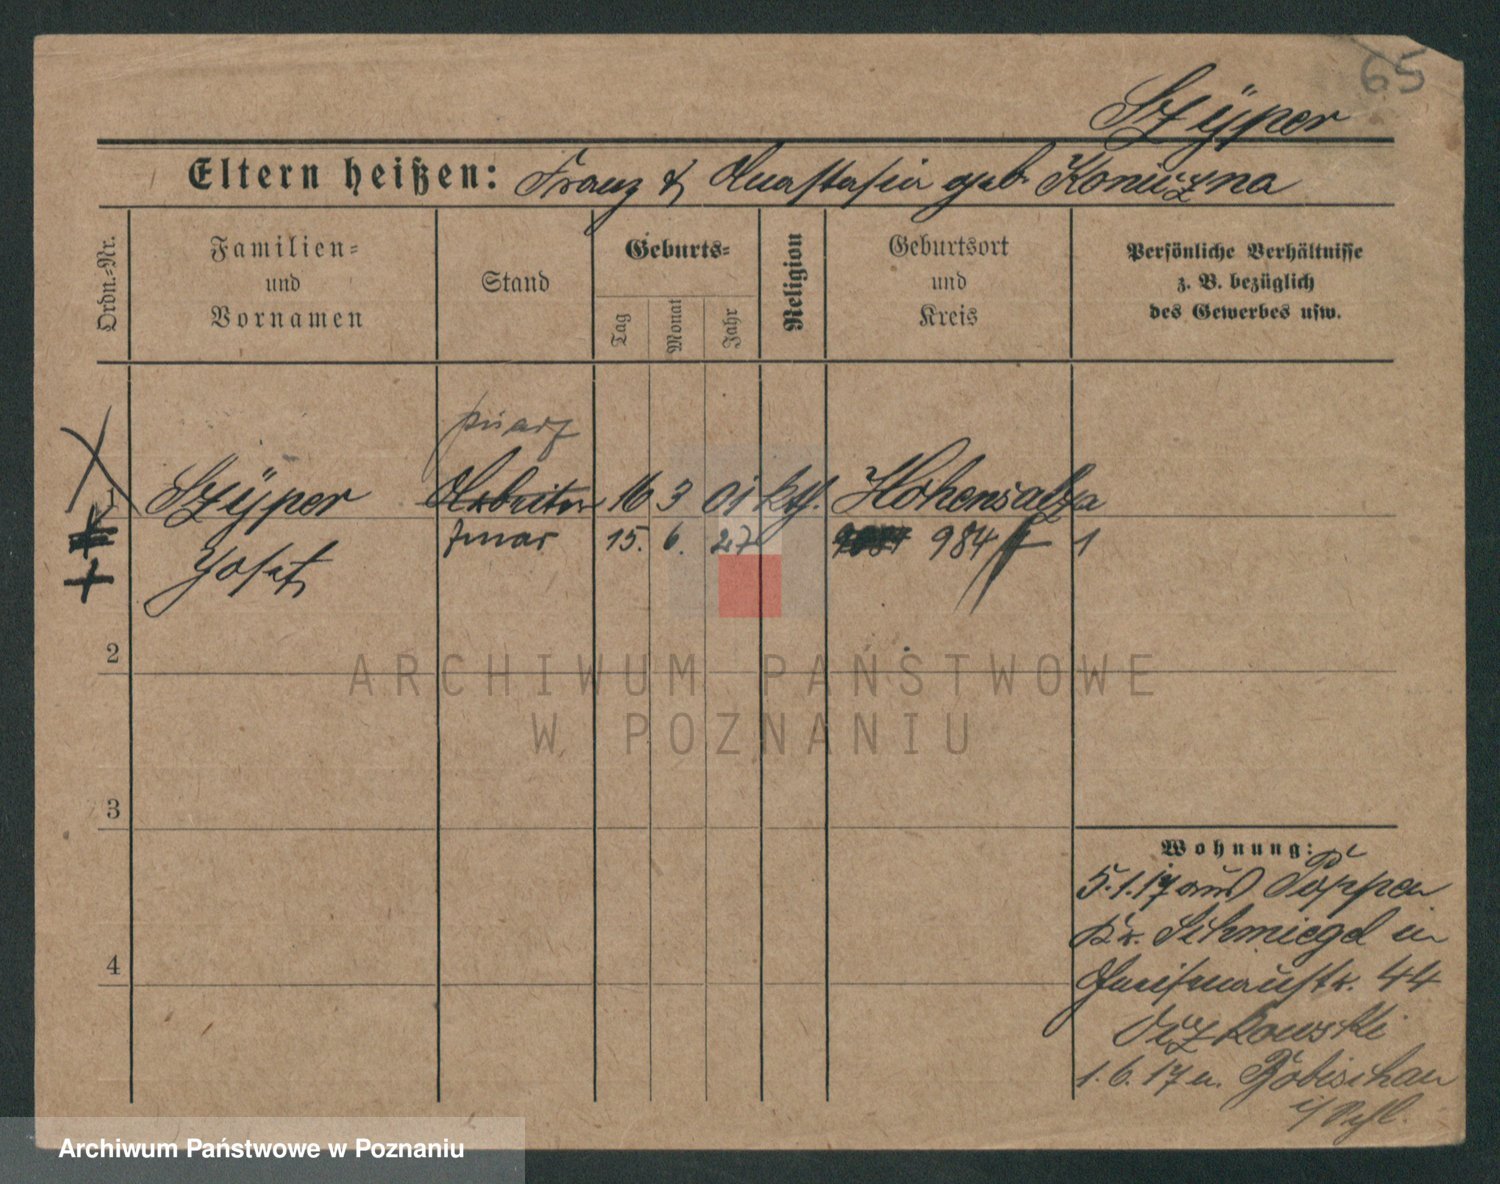 65
Szÿper
Eltern heißen: Franz & Anastasia geb. Koniczna
Ordn.-Nr.
Familien-
und
Vornamen
Stand
Geburts-
Tag
Monat
Jahr
Religion
Geburtsort
und
Kreis
Persönliche Verhältnisse
z. B. bezüglich
des Gewerbes usw.
1
Szÿper Arbeiter 16 3 01 kth. Hohensalza
Josef 15. 6. 27 984 1
2
ARCHIWUM PAŃSTWOWE
W POZNANIU
3
Wohnung:
5.1.17 aus Poppen
Kr. Schmiegel in
Gneisenaustr. 44
1.6.17 n. Bobischau
i/Schl.
4
Archiwum Państwowe w Poznaniu